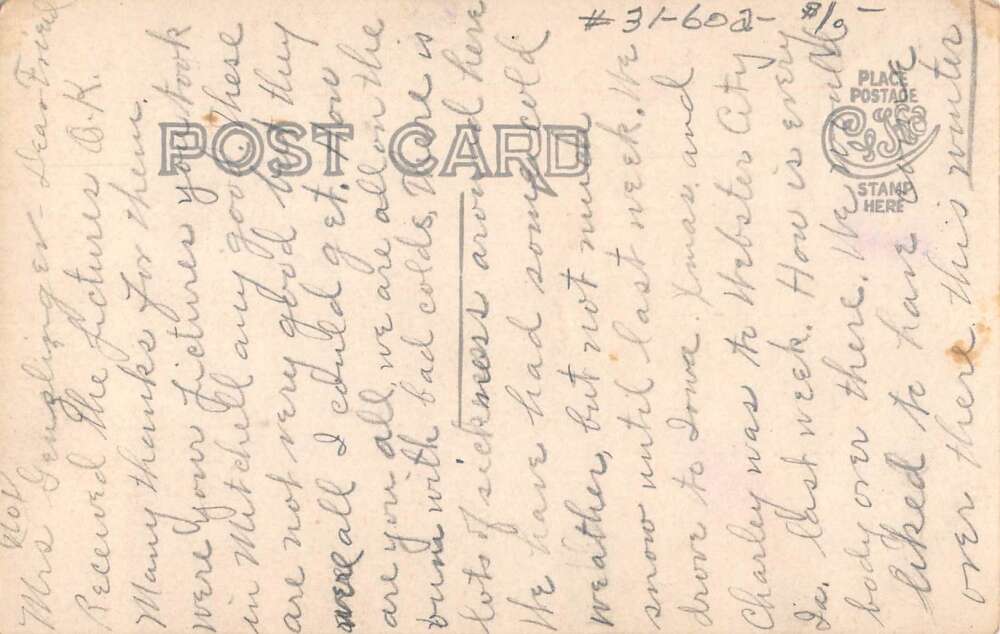 #31-602- $1.0-
POST CARD
PLACE
POSTAGE
STAMP
HERE
Mrs Genglinger - Dear Friend
Received The Pictures O.K.
Many thanks for them
were your Pictures you took
in Mitchell any good. These
are not very good but they
were all I could get. How
are you all, we are all on the
bum with bad colds, There is
lots of sickness around here
We have had some cold
weather, but not much
snow until last week. We
drove to Iowa Xmas, and
Charley was to Webster City
Ia. last week. How is every
body over there. We would
liked to have came
over there this winter